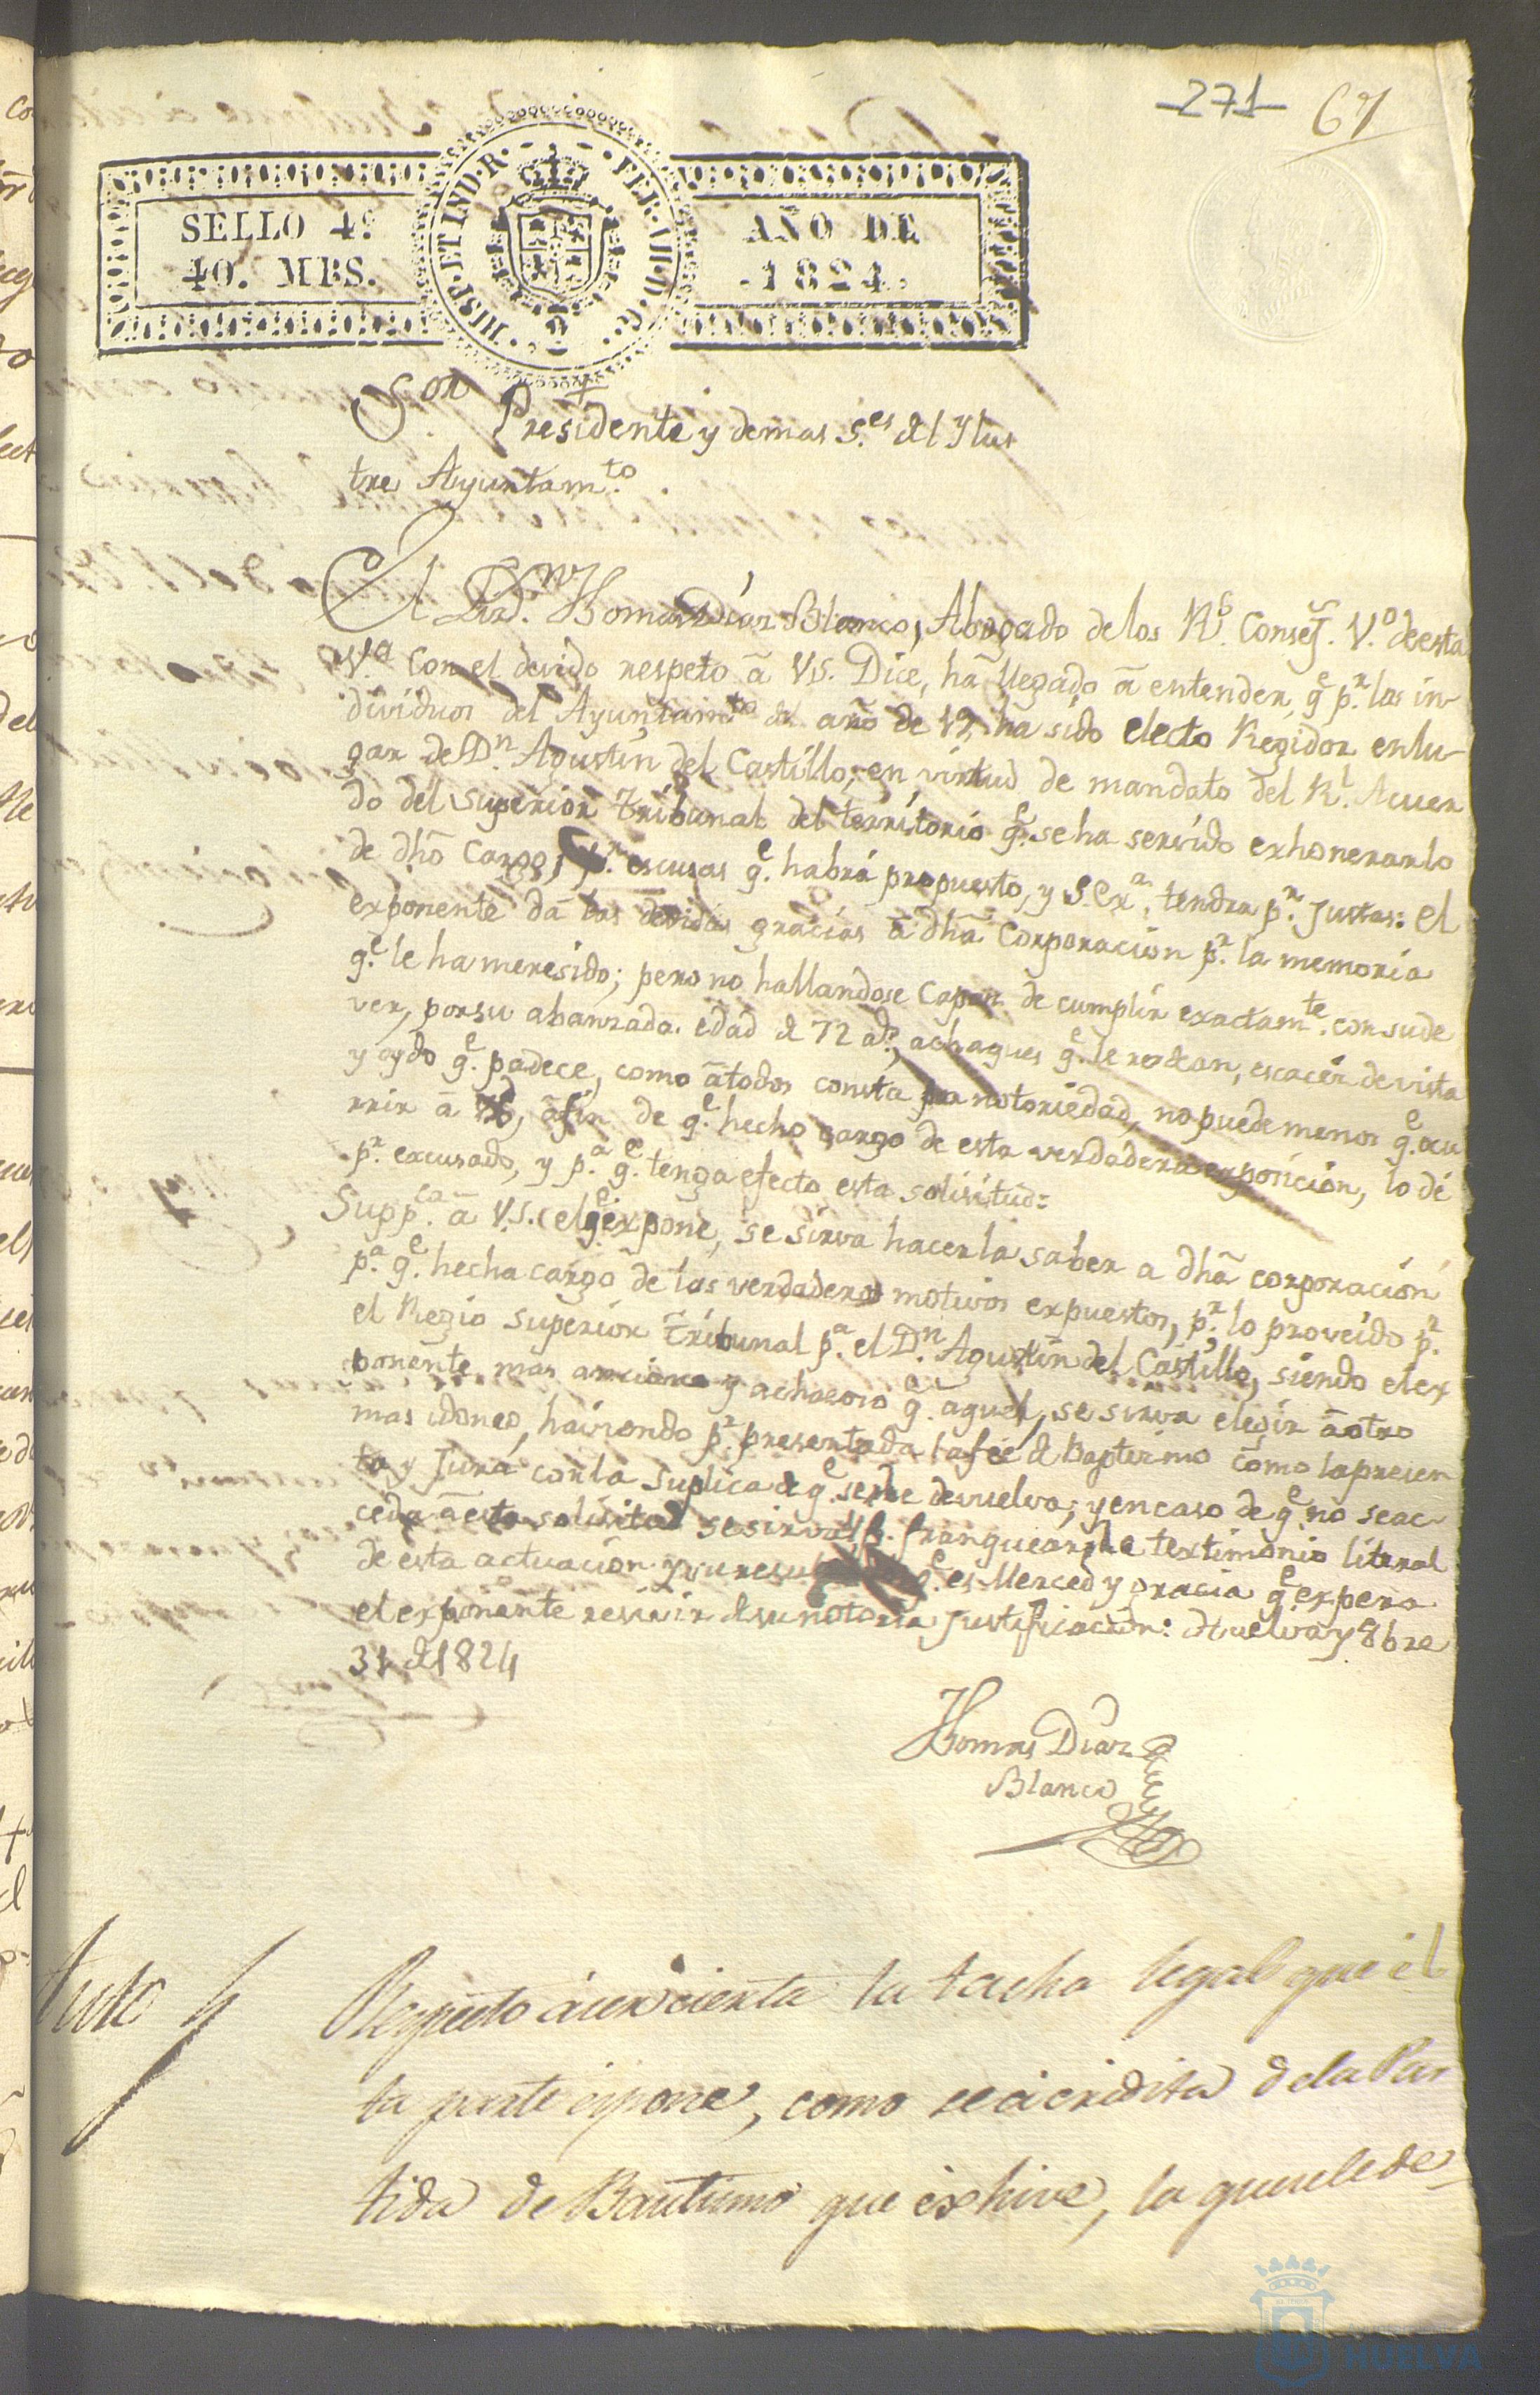 271 67
SELLO 4º
40. MRS.
HISP. ET IND. R. FER. VII. D. G.
AÑO DE
1824.
Sor
Presidente y demas S.es del Ylus
tre Ayuntam.to
El Lizd. Dn Thomas Díaz Blanco, Abogado de los R.s Consej.s V.o de esta
V.a Con el devido respeto â VS. Dice, hâ llegado â entender, q.e p.r los in-
dividuos del Ayuntam.to del año de 19, ha sido electo Regidor en lu-
gar de D.n Agustín del Castillo, en virtud de mandato del R.l Acuer
do del Superior Tribunal del territorio q.e se ha servido exhonerarlo
de dhô Cargo, p.r escusas q.e habrá propuesto, y S. Ex.a tendra p.r Justas: el
exponente dâ las devidas gracias â dhâ Corporacíon p.r la memoria
q.e le ha meresido; pero no hallandose Capaz de cumplir exactam.te con su de
ver, por su abanzada edad de 72 a.s, achaques q.e le rodean, escacéz de vista
y oydo q.e padece, como âtodos consta pra notoriedad, no puede menos q.e ocu
rrir â VS, âfin de q.e hecho cargo de esta verdadera exposicíon, lo dé
p.r excusado, y p.a q.e tenga efecto esta solisitud:
Supp.ca â V.S. el q.e expone, se sirva hacerla saber a dhâ corporacíon
p.a q.e hecha cargo de los verdaderos motivos expuestos, p.r lo proveído p.r
el Regio Superior Tribunal p.a el D.n Agustín del Castillo, siendo el ex
ponente mas anciano y achacoso q.e aquel, se sirva elegir âotro
mas idoneo, haviendo p.r presentada la feé de Baptismo como la presen
ta y Jura con la suplica de q.e se le devuelva; y en caso de q.e no se ac-
ceda âesta solisitud se sirva VS. franquearle textimonio literal
de esta actuacíon y su q.e es Merced y gracia q.e expera
el exponente resivir de su notoria Justificacíon: Huelva y 8bre
31 de 1824
Thomas Díaz
Blanco
Auto
Respecto á ser cierta la tacha legal que és
ta parte expone, como se acredita de la Par
tida de Bautismo que exhive, la que se le de-
HUELVA